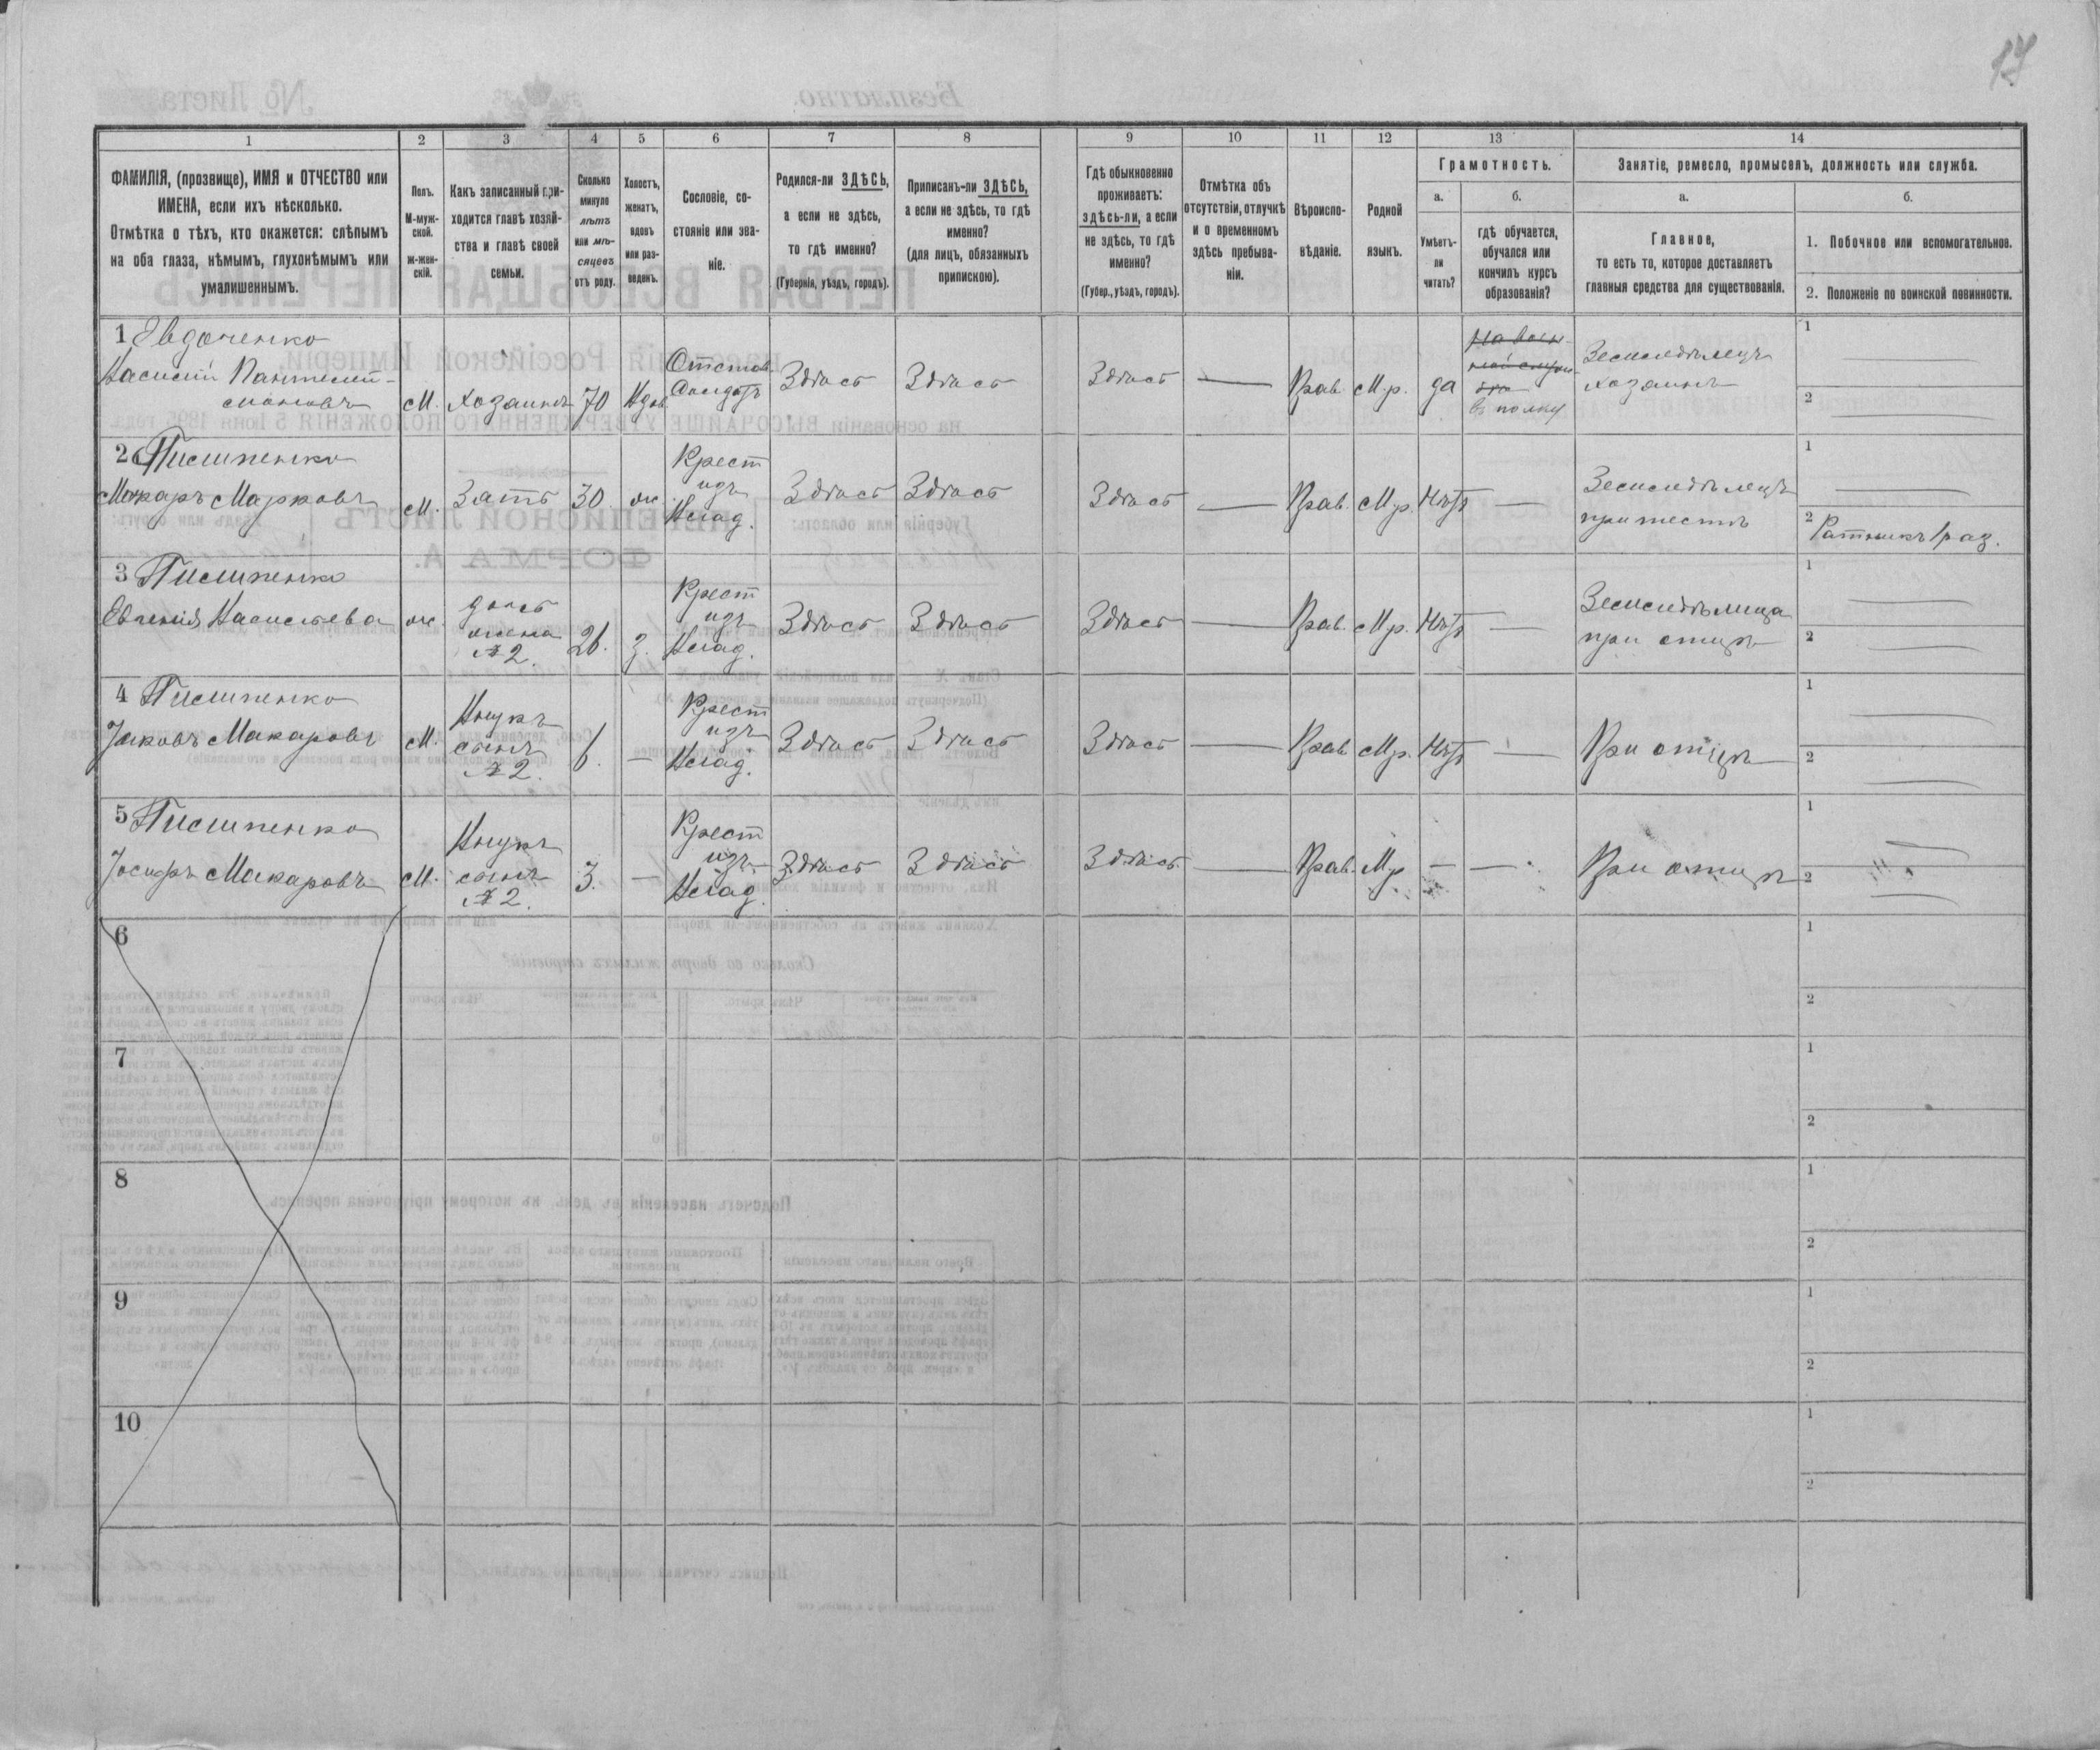 17
1 2 3 4 5 6 7 8 9 10 11 12 13 14
ФАМИЛІЯ, (прозвище), ИМЯ и ОТЧЕСТВО или
ИМЕНА, если ихъ нѣсколько.
Отмѣтка о тѣхъ, кто окажется: слѣпымъ
на оба глаза, нѣмымъ, глухонѣмымъ или
умалишеннымъ.
Полъ.
М-муж-
ской.
Ж-жен-
скій.
Какъ записанный при-
ходится главѣ хозяй-
ства и главѣ своей
семьи.
Сколько
минуло
лѣтъ
или мѣ-
сяцевъ
отъ роду.
Холостъ,
женатъ,
вдовъ
или раз-
веденъ.
Сословіе, со-
стояніе или зва-
ніе.
Родился-ли ЗДѢСЬ,
а если не здѣсь,
то гдѣ именно?
(Губернія, уѣздъ, городъ).
Приписанъ-ли ЗДѢСЬ,
а если не здѣсь, то гдѣ
именно?
(для лицъ, обязанныхъ
припискою).
Гдѣ обыкновенно
проживаетъ:
здѣсь-ли, а если
не здѣсь, то гдѣ
именно?
(Губер., уѣздъ, городъ).
Отмѣтка объ
отсутствіи, отлучкѣ
и о временномъ
здѣсь пребыва-
ніи.
Вѣроиспо-
вѣданіе.
Родной
языкъ.
Грамотность.
а.
Умѣетъ-
ли
читать?
б.
гдѣ обучается,
обучался или
кончилъ курсъ
образованія?
Занятіе, ремесло, промыселъ, должность или служба.
а.
Главное,
то есть то, которое доставляетъ
главныя средства для существованія.
б.
1. Побочное или вспомогательное.
2. Положеніе по воинской повинности.
1 Евдоченко
Василій Пантелей-
моновъ
М.
Хозяинъ
70
Вдов
Отстав.
Солдатъ
Здѣсь
Здѣсь
Здѣсь
—
Прав.
М.р.
да
въ полку
Земледѣлецъ
хозяинъ
1
2
2 Писипенко
Макаръ Марковъ
М.
Зять
30
ж
Крест
изъ
Влад.
Здѣсь
Здѣсь
Здѣсь
—
Прав.
М.р.
Нѣтъ
—
Земледѣлецъ
при тестѣ
1
2 Ратникъ 1 раз.
3 Писипенко
Евгенія Васильева
ж.
дочь
жена
№ 2.
26.
З.
Крест
изъ
Влад.
Здѣсь
Здѣсь
Здѣсь
—
Прав.
М.р.
Нѣтъ
—
Земледѣлица
при отцѣ
1
2
4 Писипенко
Яковъ Макаровъ
М.
Внукъ
сынъ
№ 2.
6.
—
Крест
изъ
Влад.
Здѣсь
Здѣсь
Здѣсь
—
Прав.
М.р.
Нѣтъ
—
При отцѣ
1
2
5 Писипенко
Іосифъ Макаровъ
М.
Внукъ
сынъ
№ 2.
3.
—
Крест
изъ
Влад.
Здѣсь
Здѣсь
Здѣсь
—
Прав.
М.р
—
—
При отцѣ
1
2
6
1
2
7
1
2
8
1
2
9
1
2
10
1
2